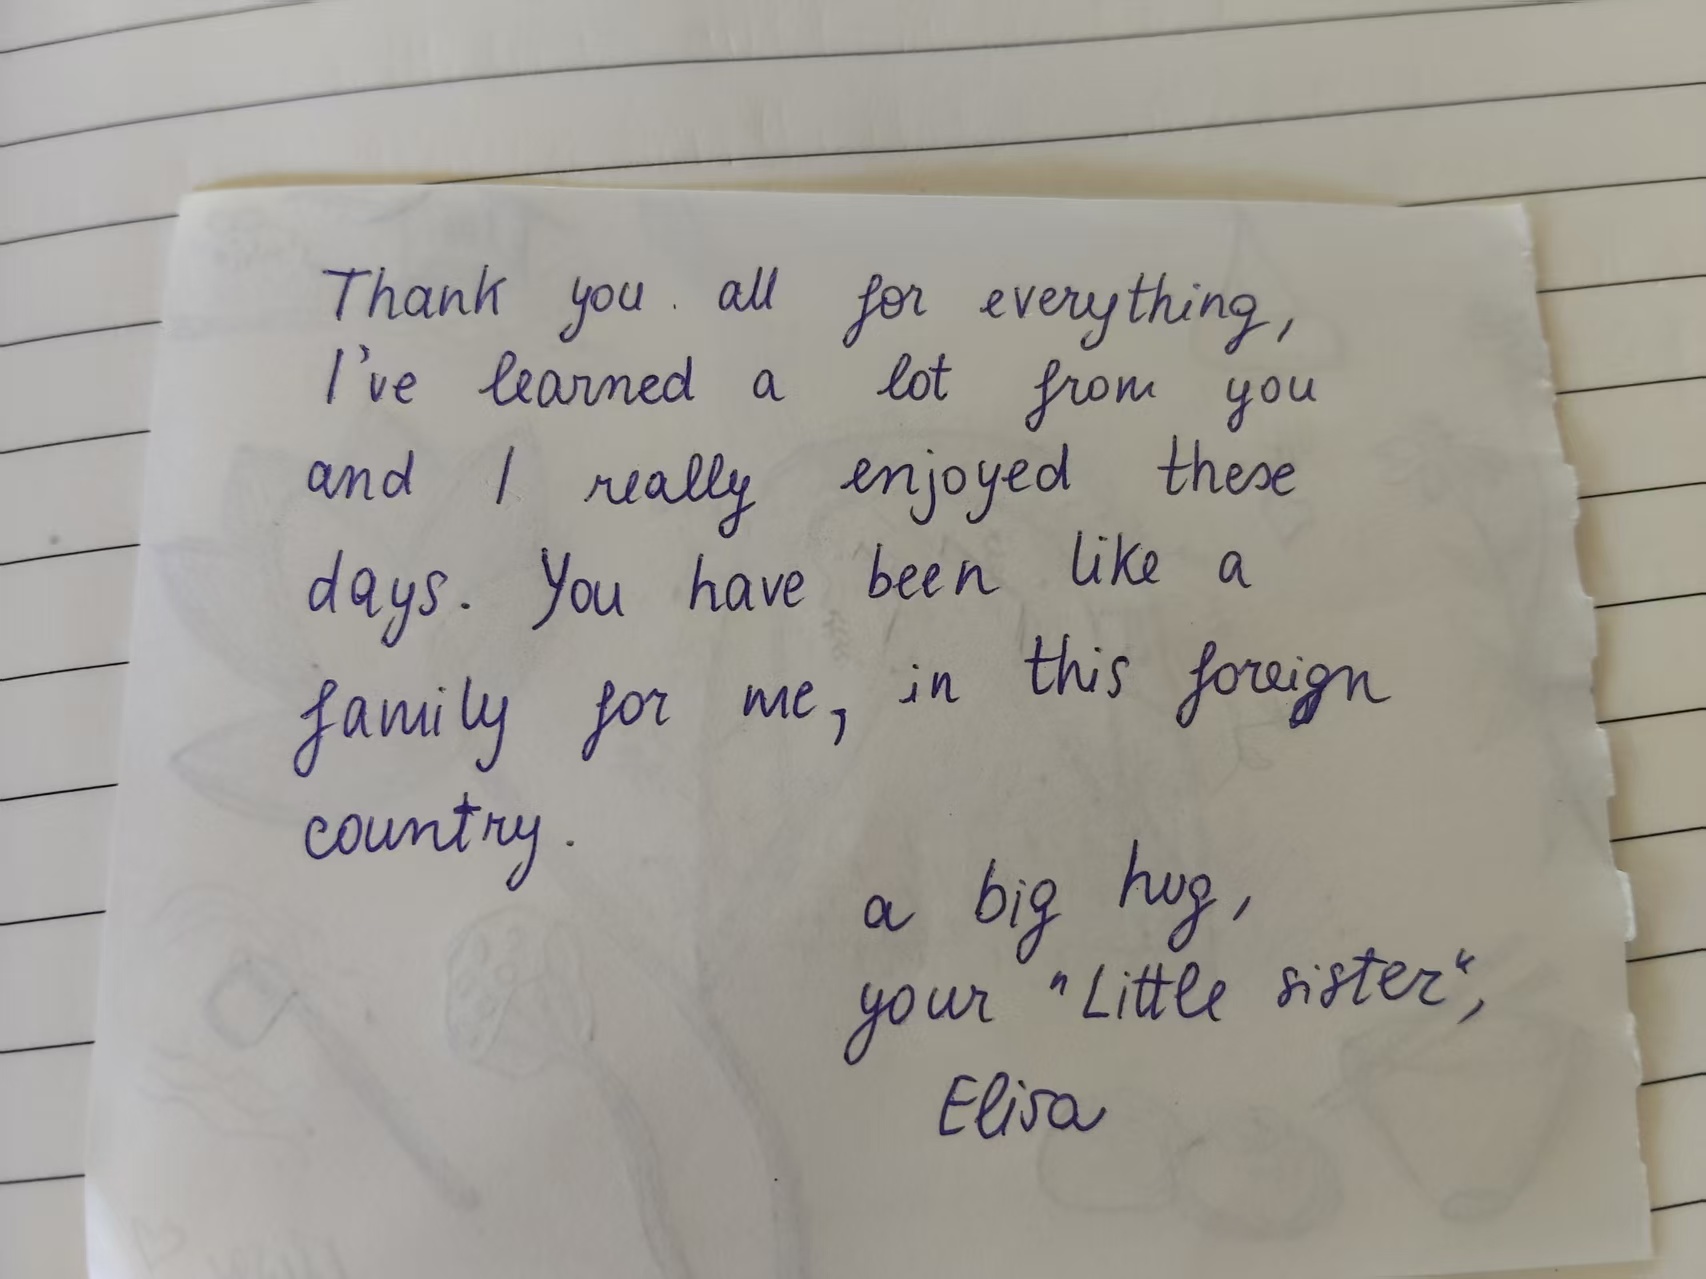 Thank you all for everything,
I've learned a lot from you
and I really enjoyed these
days. You have been like a
family for me, in this foreign
country.
a big hug,
your "Little sister",
Elisa